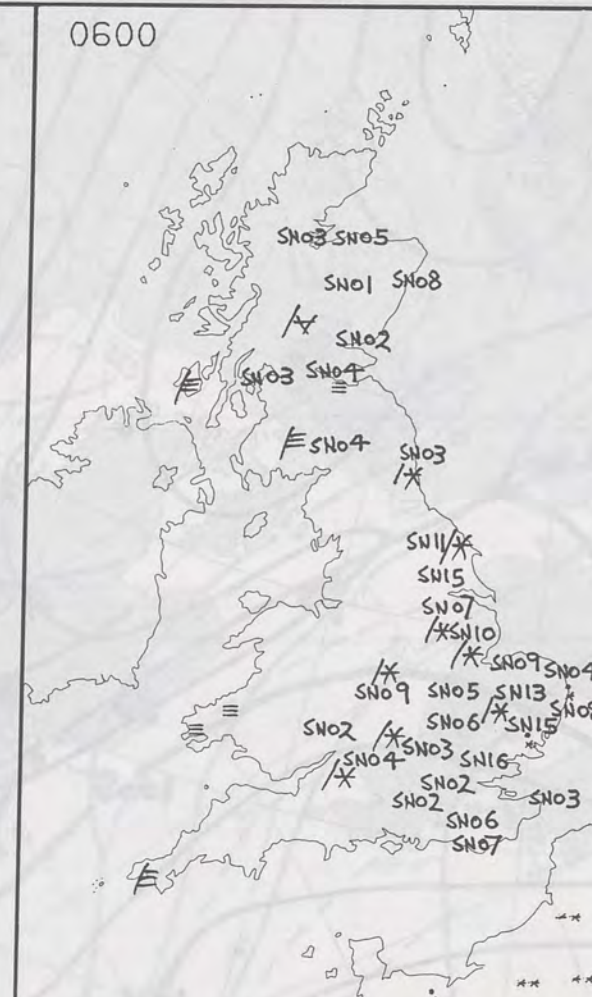 0600
SN03 SN05
SN01 SN08
SN02
SN03 SN04
SN04
SN03
SN11
SN15
SN07
SN10
SN09 SN04
SN09 SN05 SN13
SN08
SN02 SN06 SN15
SN03
SN04 SN16
SN02
SN02 SN03
SN06
SN07